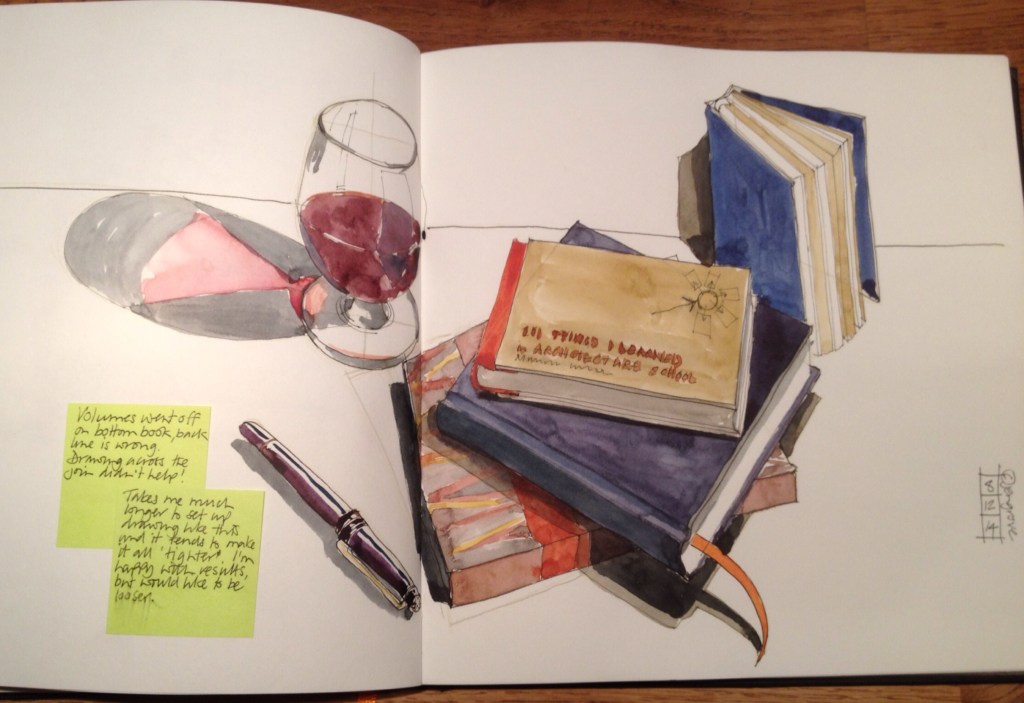 Volumes went off
on bottom book, back
line is wrong.
Drawing across the
join didn't help!
Takes me much
longer to set up
drawing like this
and it tends to make
it all 'tighter'. I'm
happy with results,
but would like to be
looser.
101 THINGS I LEARNED
IN ARCHITECTURE SCHOOL